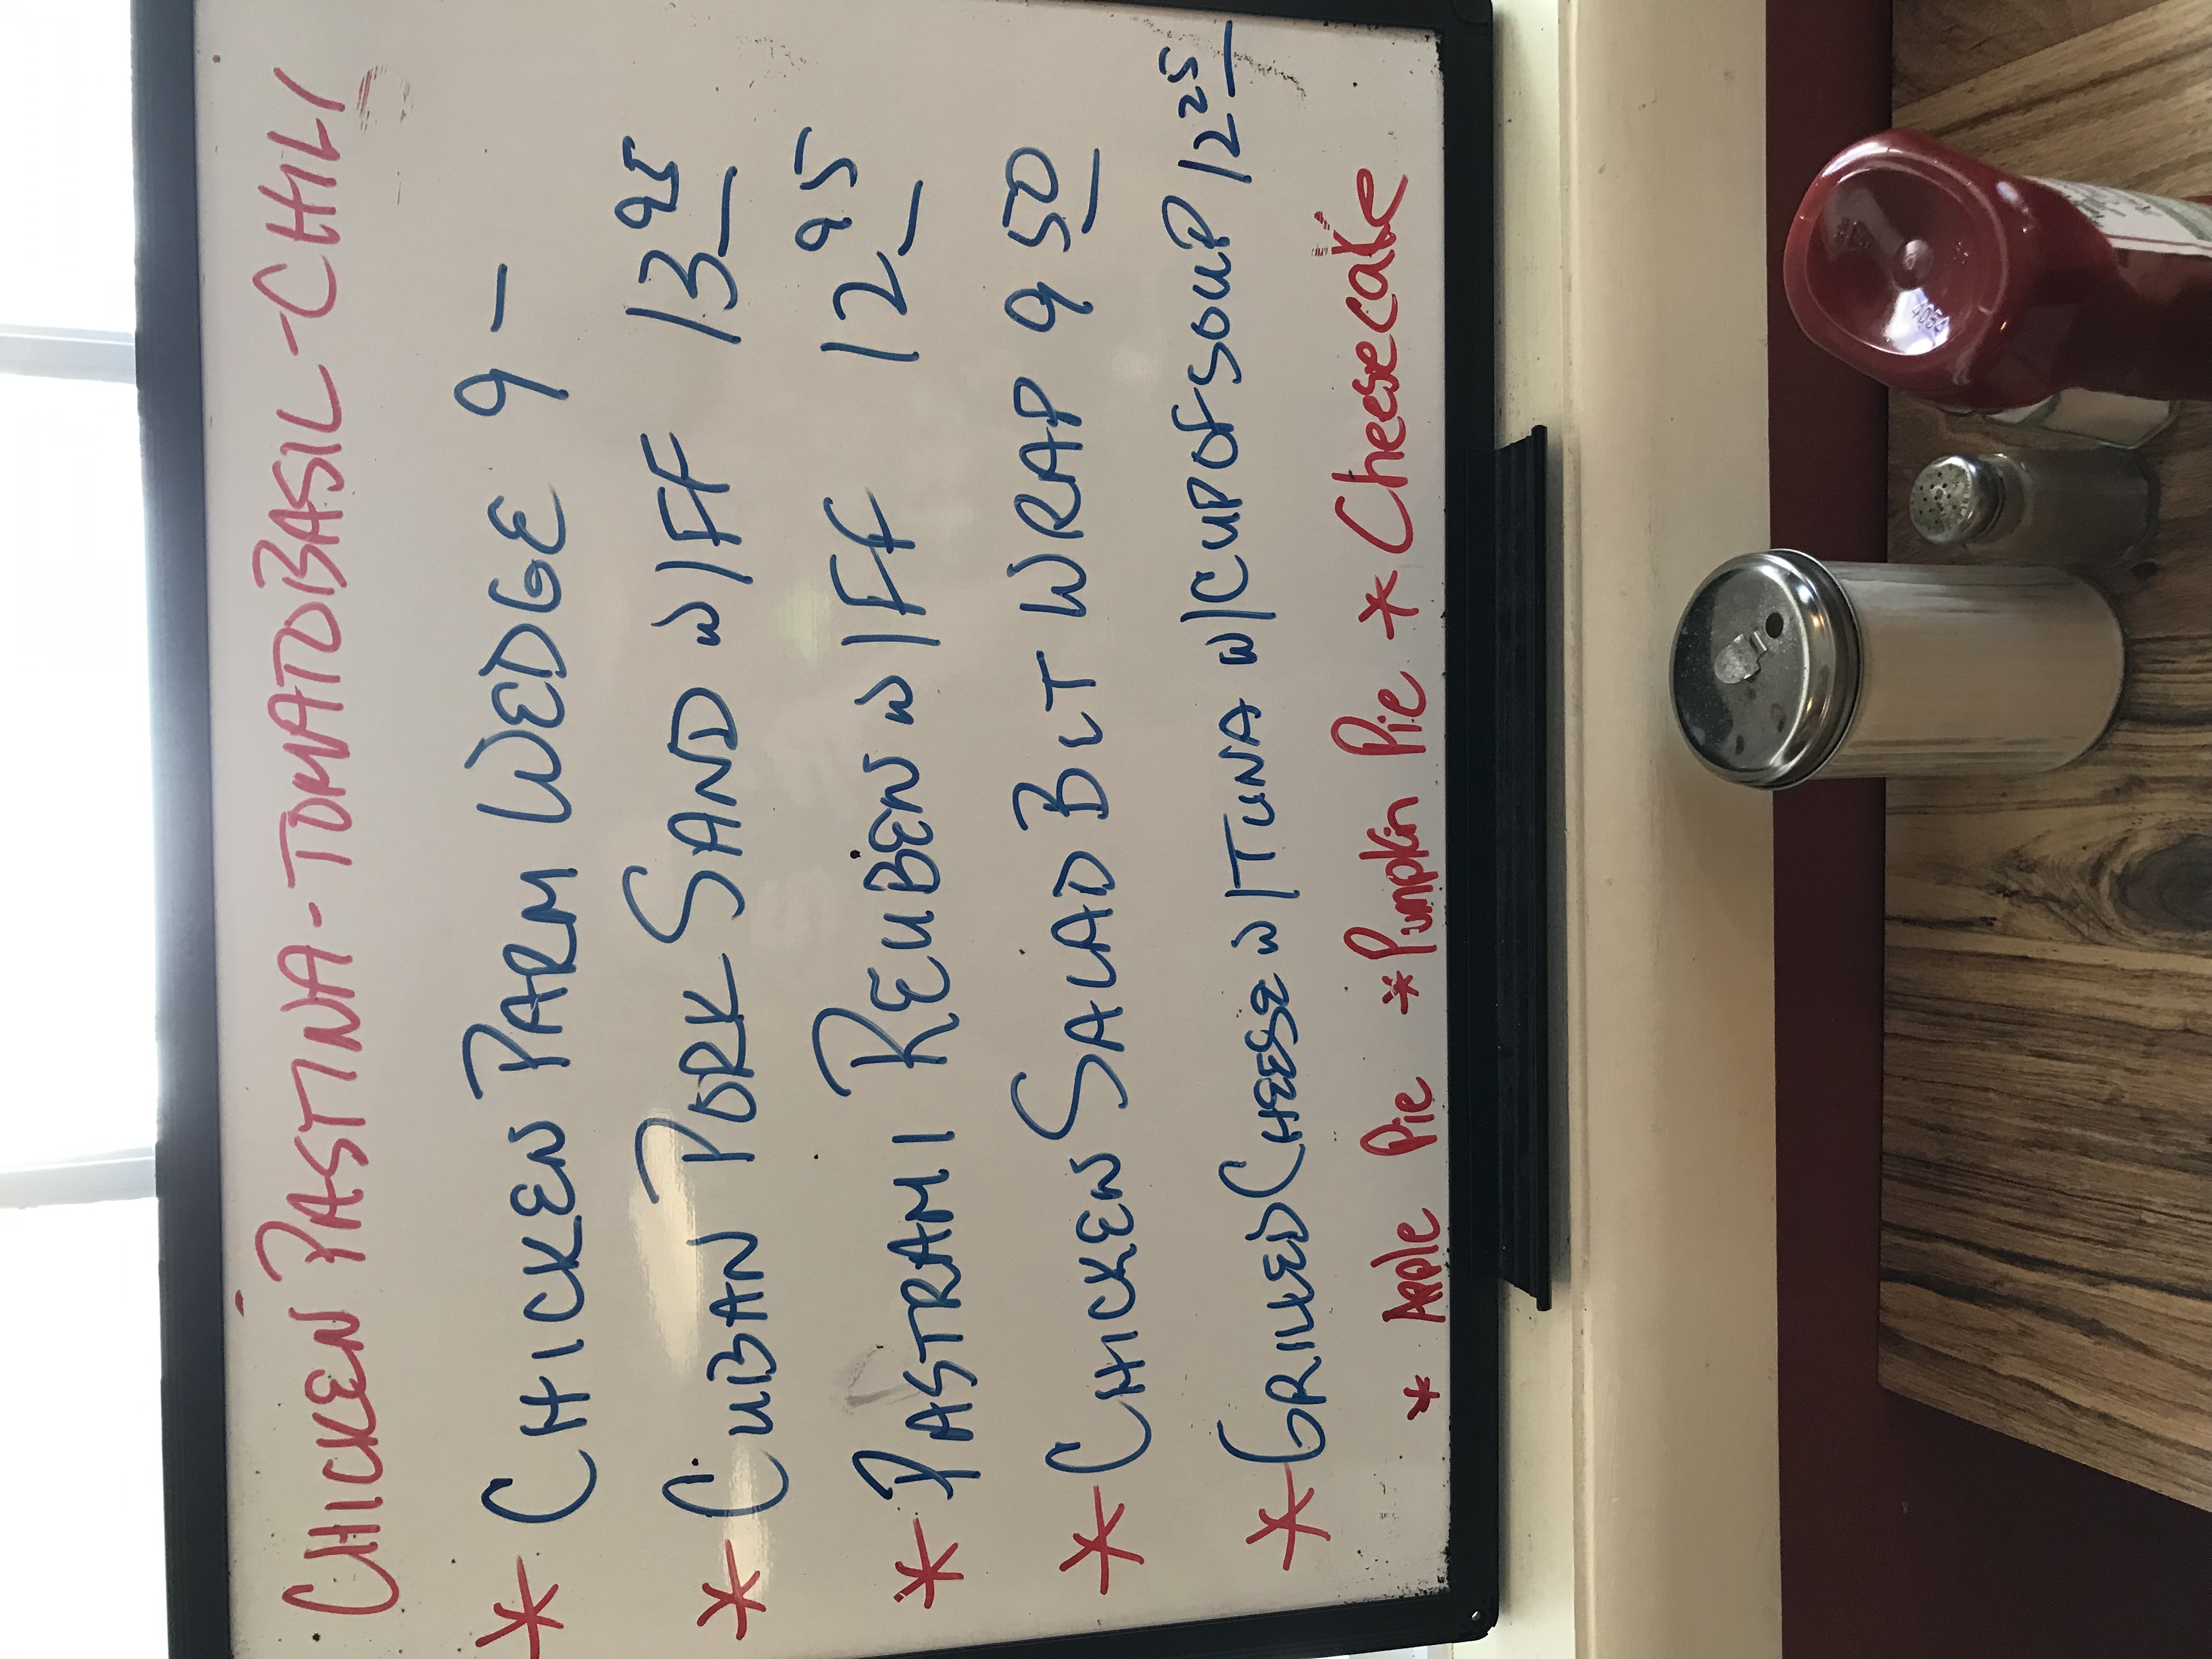 CHICKEN PASTINA - TOMATO BASIL - CHILI
* CHICKEN PARM WEDGE 9 -
* CUBAN PORK SAND W/FF 13 95
* PASTRAMI REUBEN W/FF 12 95
* CHICKEN SALAD BLT WRAP 9 50
* GRILLED CHEESE W/TUNA W/CUP OF SOUP 12 25
* Apple Pie * Pumpkin Pie * Cheesecake